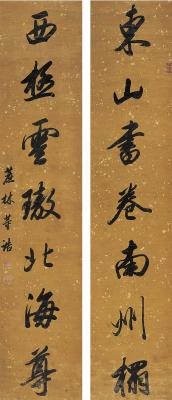 東山書卷南州榻
西極雲璈北海尊
蔗林董誥